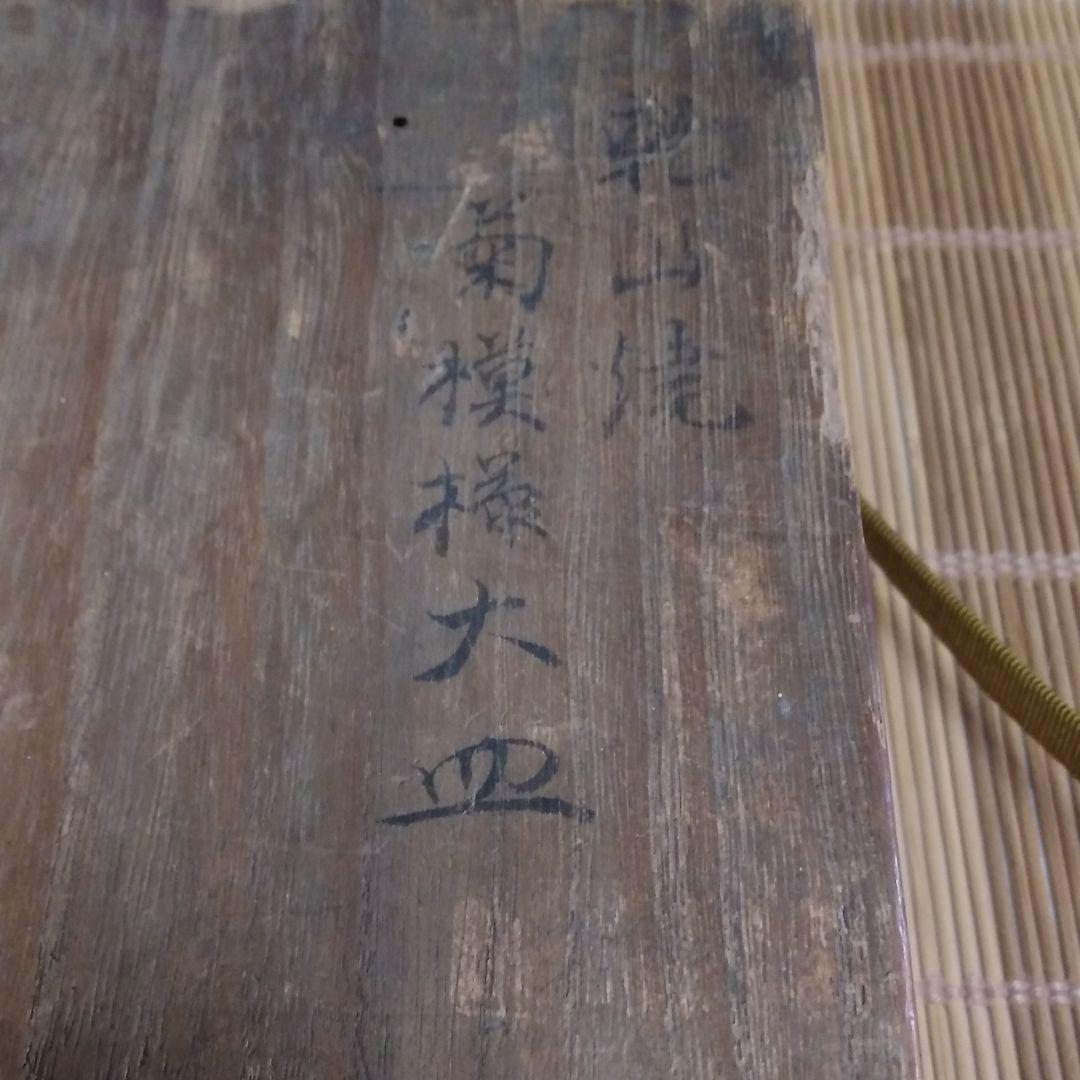 乾山焼
菊模様大皿